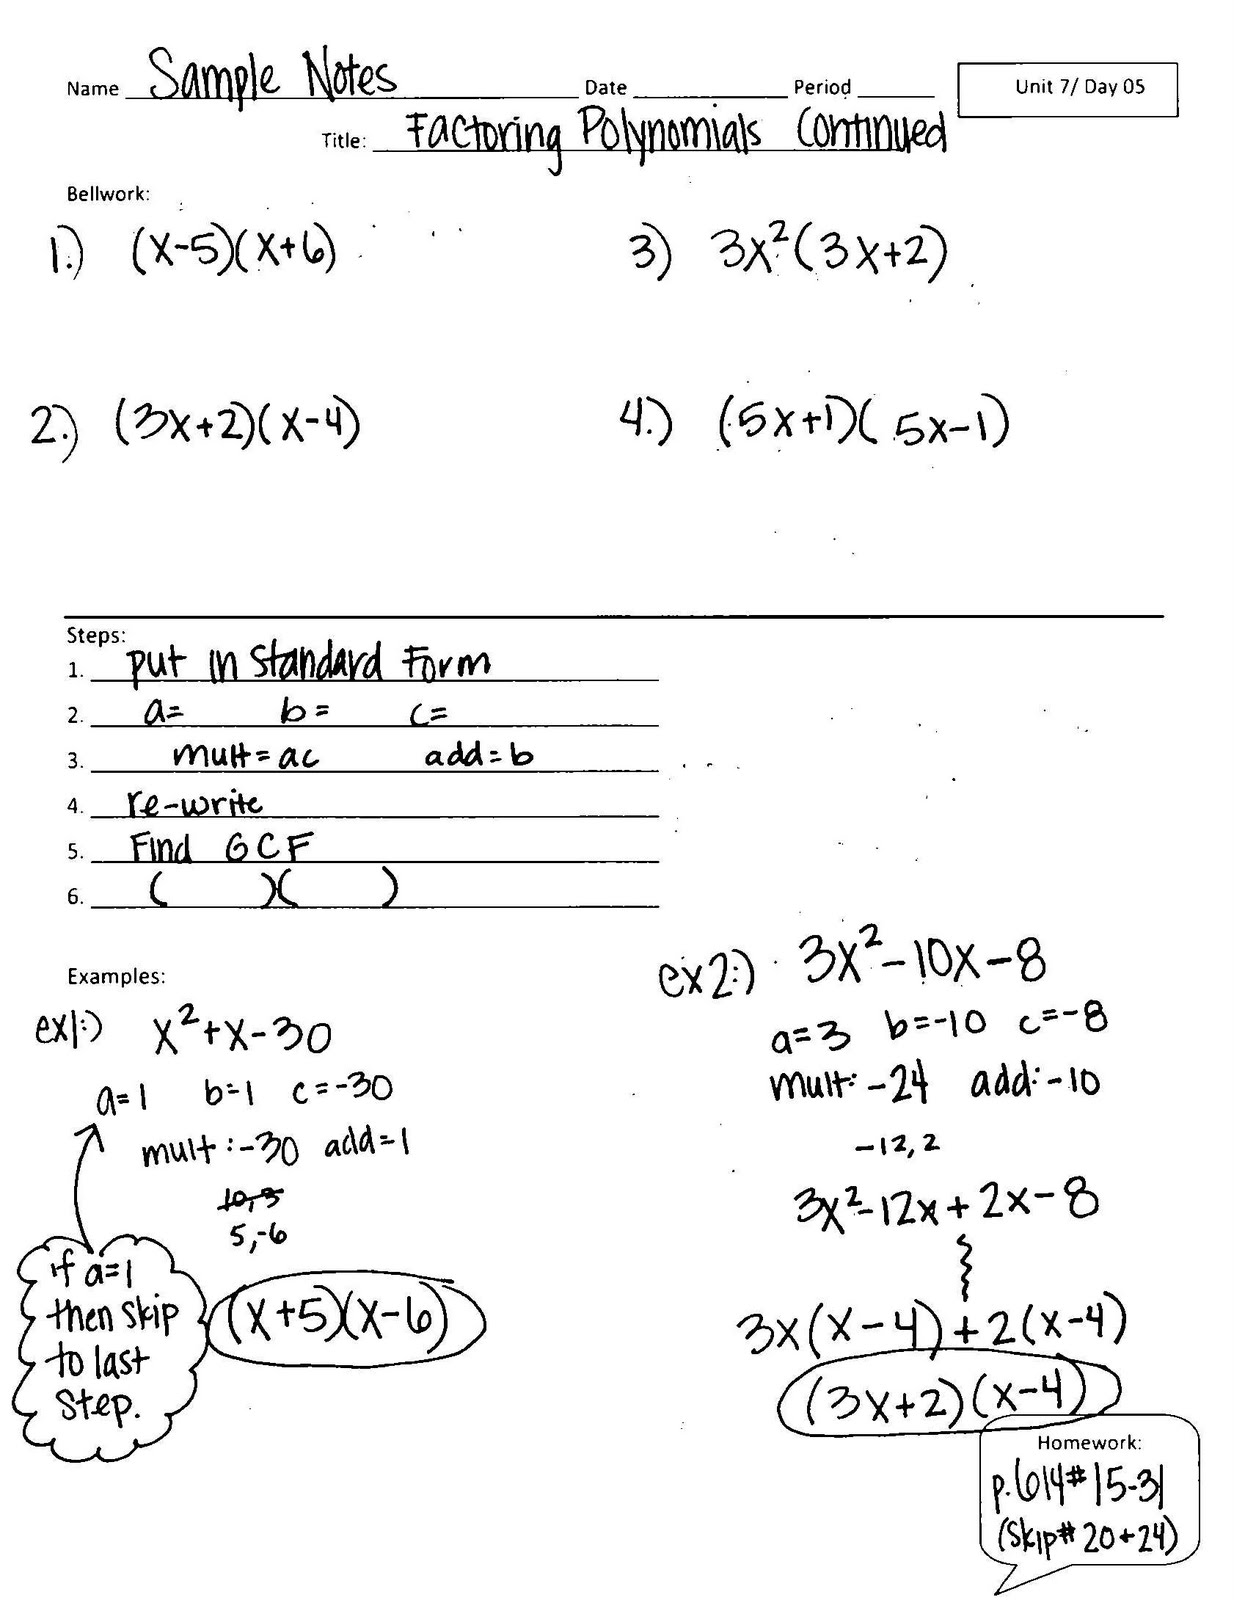 Name Sample Notes Date Period Unit 7/ Day 05
Title: Factoring Polynomials Continued
Bellwork:
1.) (x-5)(x+6)
3) 3x²(3x+2)
2.) (3x+2)(x-4)
4.) (5x+1)(5x-1)
Steps:
1. put in standard form
2. a= b= c=
3. mult=ac add=b
4. re-write
5. Find GCF
6. ( )( )
Examples:
ex1:) x²+x-30
a=1 b=1 c=-30
mult:-30 add=1
10,3
5,-6
(x+5)(x-6)
if a=1
then skip
to last
step.
ex2:) 3x²-10x-8
a=3 b=-10 c=-8
mult: -24 add: -10
-12, 2
3x²-12x+2x-8
3x(x-4)+2(x-4)
(3x+2)(x-4)
Homework:
p.614# 15-31
(skip# 20+24)